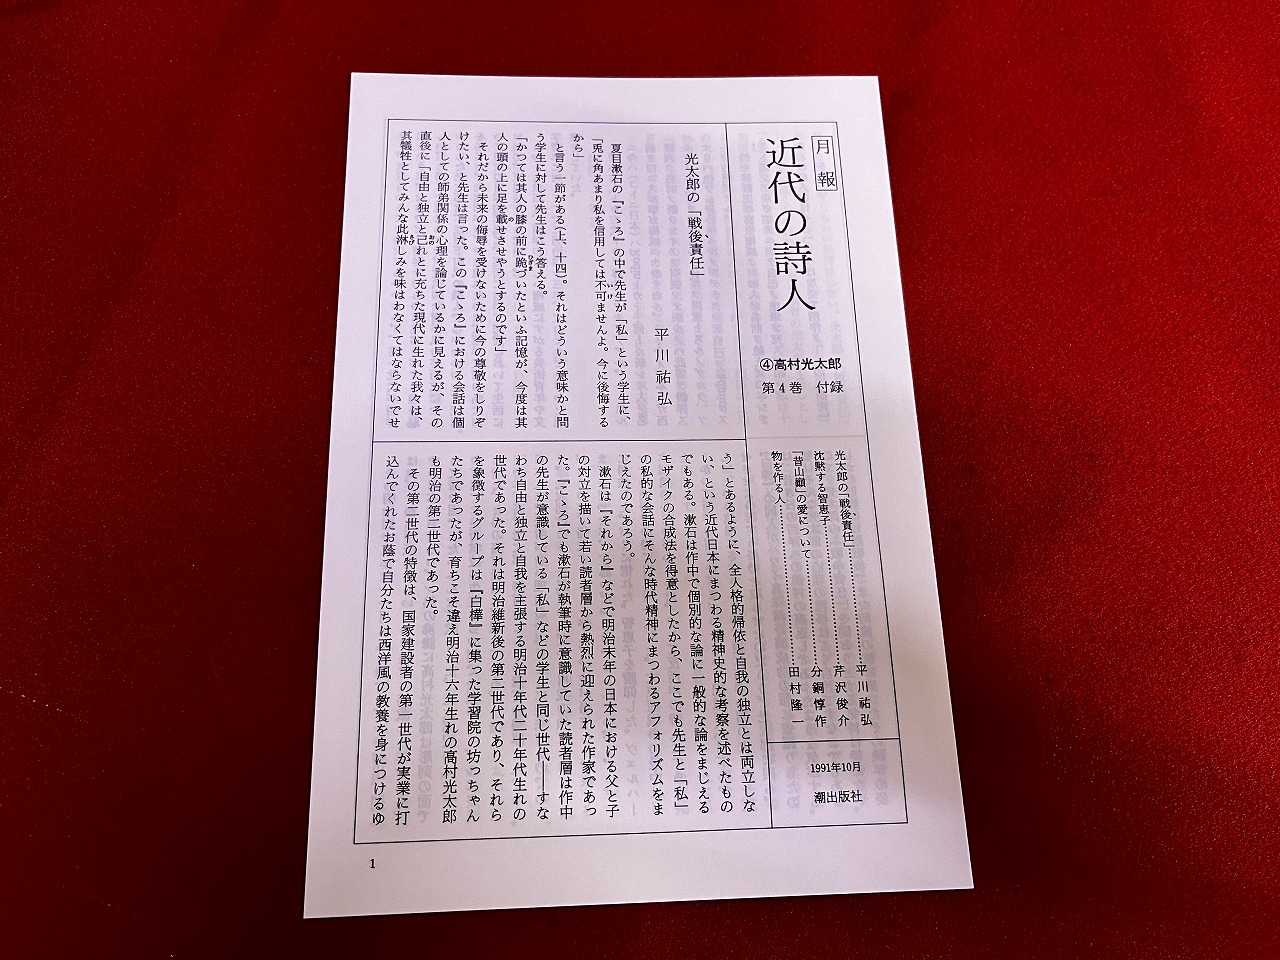 月報
近代の詩人
④高村光太郎
第4巻　付録
光太郎の「戦後責任」…………平川祐弘
沈黙する智恵子…………芹沢俊介
「昔山巓」の愛について…………分銅惇作
物を作る人…………田村隆一
1991年10月
潮出版社
光太郎の「戦後責任」
平川祐弘
夏目漱石の『こゝろ』の中で先生が「私」という学生に、
「兎に角あまり私を信用しては不可ませんよ。今に後悔する
から」
と言う一節がある（上、十四）。それはどういう意味かと問
う学生に対して先生はこう答える。
「かつては其人の膝の前に跪づいたといふ記憶が、今度は其
人の頭の上に足を載せさせやうとするのです」
それだから未来の侮辱を受けないために今の尊敬をしりぞ
けたい、と先生は言った。この『こゝろ』における会話は個
人としての師弟関係の心理を論じているかに見えるが、その
直後に「自由と独立と己れとに充ちた現代に生れた我々は、
其犠牲としてみんな此淋しみを味はわなくてはならないでせ
う」とあるように、全人格的帰依と自我の独立とは両立しな
い、という近代日本にまつわる精神史的な考察を述べたもの
でもある。漱石は作中で個別的な論に一般的な論をまじえる
モザイクの合成法を得意としたから、ここでも先生と「私」
の私的な会話にそんな時代精神にまつわるアフォリズムをま
じえたのであろう。
漱石は『それから』などで明治末年の日本における父と子
の対立を描いて若い読者層から熱烈に迎えられた作家であっ
た。『こゝろ』でも漱石が執筆時に意識していた読者層は作中
の先生が意識している「私」などの学生と同じ世代――すな
わち自由と独立と自我を主張する明治十年代二十年代生れの
世代であった。それは明治維新後の第二世代であり、それら
を象徴するグループは『白樺』に集った学習院の坊っちゃん
たちであったが、育ちこそ違え明治十六年生れの高村光太郎
も明治の第二世代であった。
その第二世代の特徴は、国家建設者の第一世代が実業に打
込んでくれたお蔭で自分たちは西洋風の教養を身につけるゆ
1